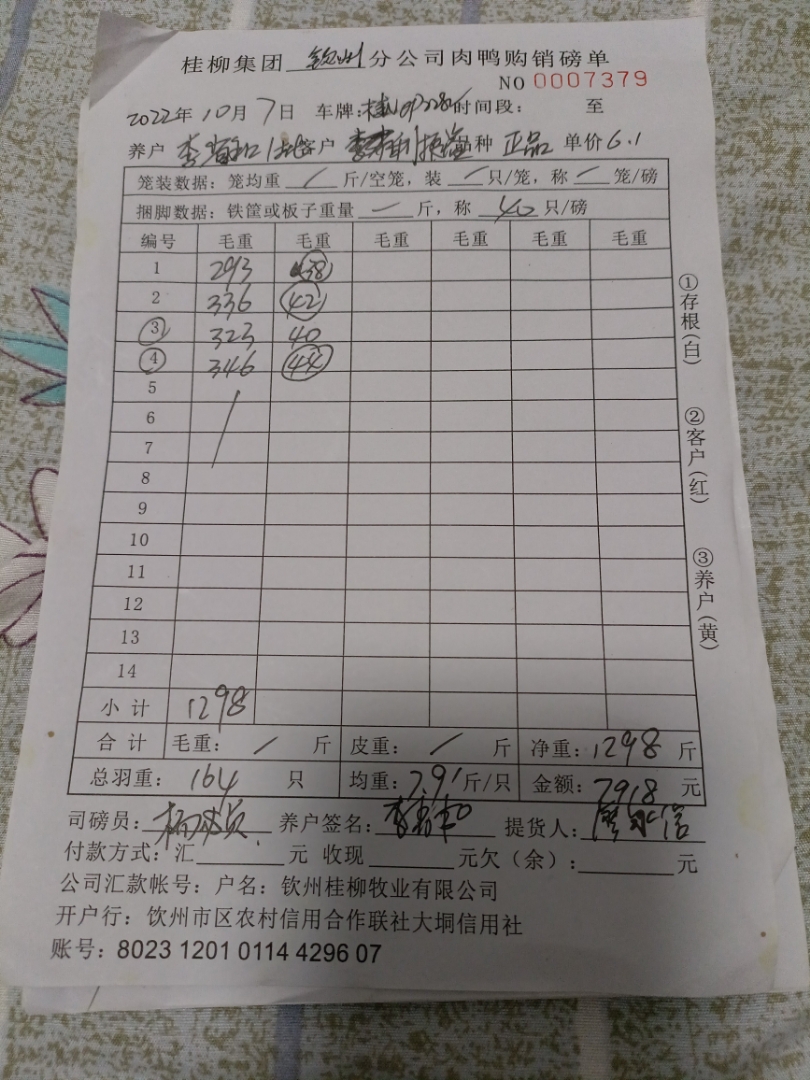 桂柳集团 钦州 分公司肉鸭购销磅单
NO 0007379
2022年10月7日 车牌: 时间段: 至
养户 客户 品种 正品 单价6.1
笼装数据：笼均重 / 斤/空笼，装 一 只/笼，称 一 笼/磅
捆脚数据：铁筐或板子重量 一 斤，称 40 只/磅
编号 毛重 毛重 毛重 毛重 毛重 毛重
1 293 38
2 336 42
3 323 40
4 346 44
5
6
7
8
9
10
11
12
13
14
小计 1298
合计 毛重： / 斤 皮重： / 斤 净重：1298 斤
总羽重： 164 只 均重：7.91斤/只 金额：7918 元
司磅员： 养户签名： 提货人：
付款方式：汇 元 收现 元欠（余）： 元
公司汇款帐号：户名：钦州桂柳牧业有限公司
开户行：饮州市区农村信用合作联社大垌信用社
账号：8023 1201 0114 4296 07
①存根(白)
②客户(红)
③养户(黄)